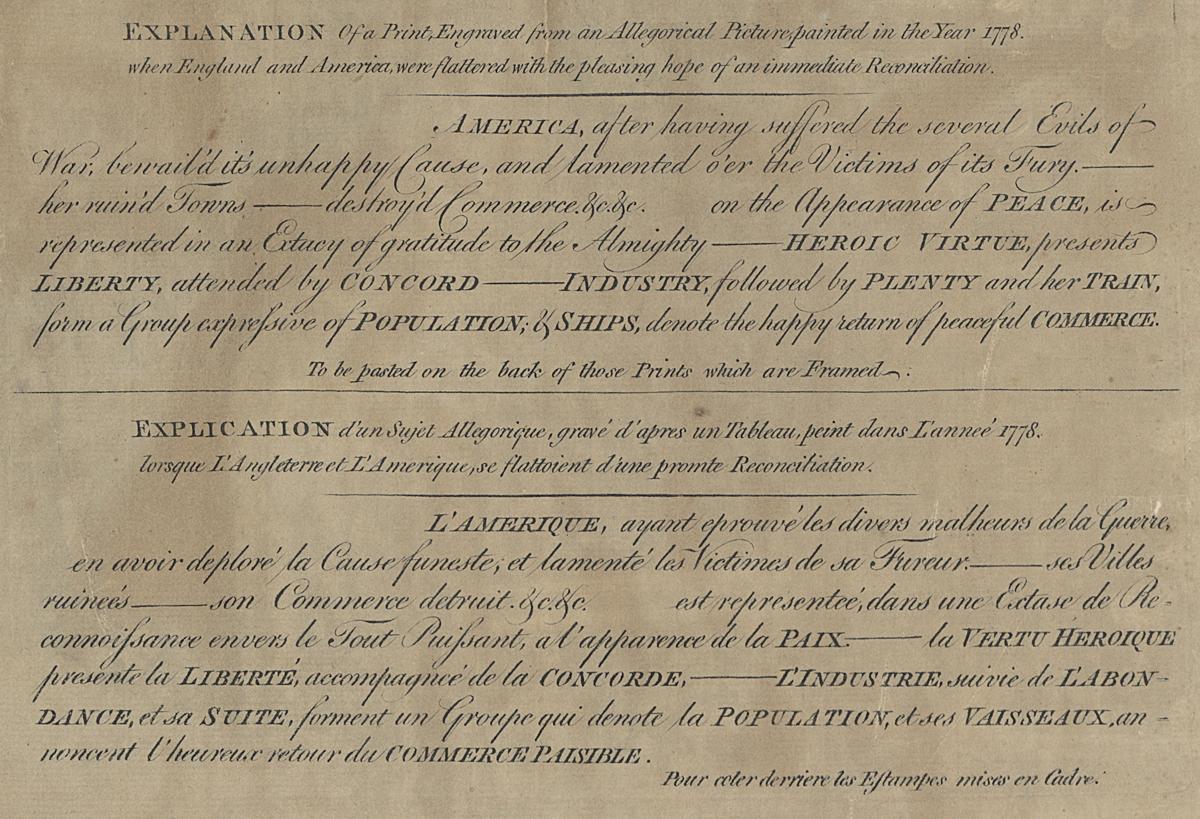 EXPLANATION Of a Print, Engraved from an Allegorical Picture, painted in the Year 1778.
when England and America, were flattered with the pleasing hope of an immediate Reconciliation.
AMERICA, after having suffered the several Evils of
War, bewail'd it's unhappy Cause, and lamented o'er the Victims of its Fury. —
her ruin'd Towns — destroy'd Commerce. &c. &c. on the Appearance of PEACE, is
represented in an Extacy of gratitude to the Almighty — HEROIC VIRTUE, presents
LIBERTY, attended by CONCORD — INDUSTRY, followed by PLENTY and her TRAIN,
form a Group expressive of POPULATION; & SHIPS, denote the happy return of peaceful COMMERCE.
To be pasted on the back of those Prints which are Framed.
EXPLICATION d'un Sujet Allegorique, gravé d'apres un Tableau, peint dans L'anneé 1778.
lorsque L'Angleterre et L'Amerique, se flattoient d'une promte Reconciliation.
L'AMERIQUE, ayant eprouvé les divers malheurs de la Guerre,
en avoir deploré la Cause funeste, et lamenté les Victimes de sa Fureur. — ses Villes
ruineés — son Commerce detruit. &c. &c. est representeé, dans une Extase de Re-
connoissance envers le Tout Puissant, a l'apparence de la PAIX. — la VERTU HEROIQUE
presente la LIBERTÉ, accompagneé de la CONCORDE, — L'INDUSTRIE, suivie de L'ABON-
DANCE, et sa SUITE, forment un Groupe qui denote la POPULATION, et ses VAISSEAUX, an-
noncent l'heureux retour du COMMERCE PAISIBLE.
Pour coler derriere les Estampes mises en Cadre.